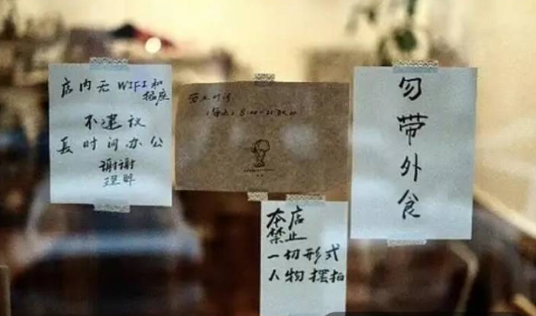 店内无 WIFI 和
插座
不建议
长时间办公
谢谢
理解
营业时间
本店
禁止
一切形式
人物摆拍
勿带外食